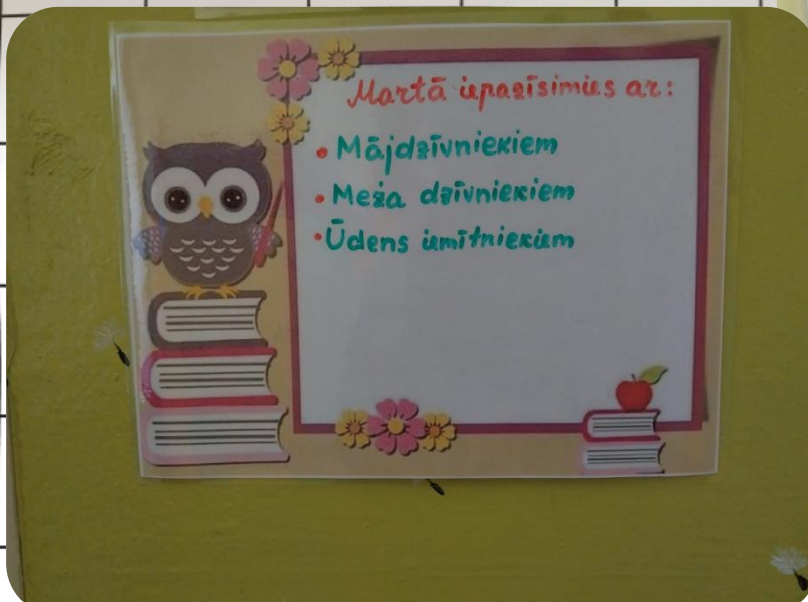 Martā iepazīsimies ar:
• Mājdzīvniekiem
• Meža dzīvniekiem
• Ūdens iemītniekiem